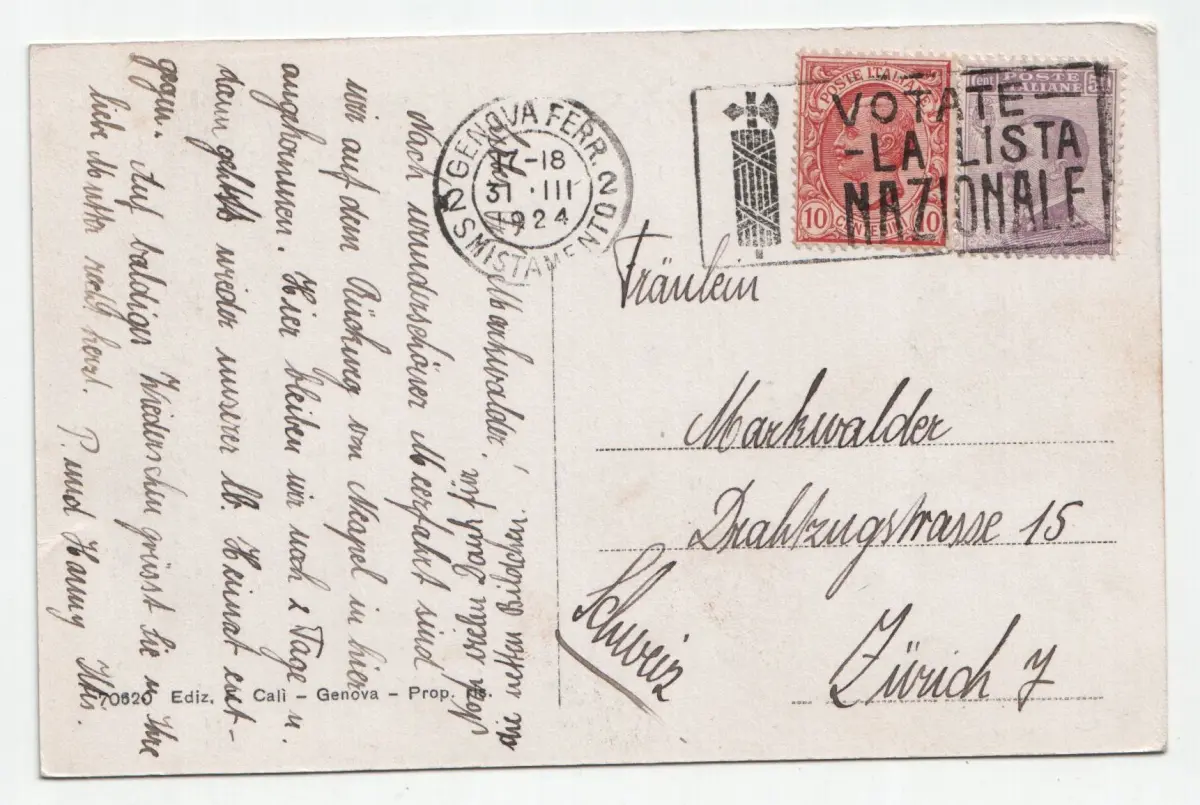 GENOVA FERR. 2
17-18
31 III
1924
SMISTAMENTO
VOTATE
-LA LISTA
NAZIONALE
POSTE ITALIANE
10 CENTESIMI 10
cent POSTE 50
ITALIANE
Markwalder!
Nach wunderschöner Meerfahrt sind
wir auf dem Rückweg von Neapel in hier
angekommen. Hier bleiben wir noch 2 Tage u.
dann geht's wieder unserer lb. Heimat ent-
gegen. Auf baldiges Wiedersehn grüsst Sie u. Ihre
liebe Mutter recht herzl. P. und Hanny
Noch vielen Dank für
die netten Bildchen.
Fräulein
Markwalder
Drahtzugstrasse 15
Zürich 7
Schweiz
70620 Ediz. Calì - Genova - Prop. ris.